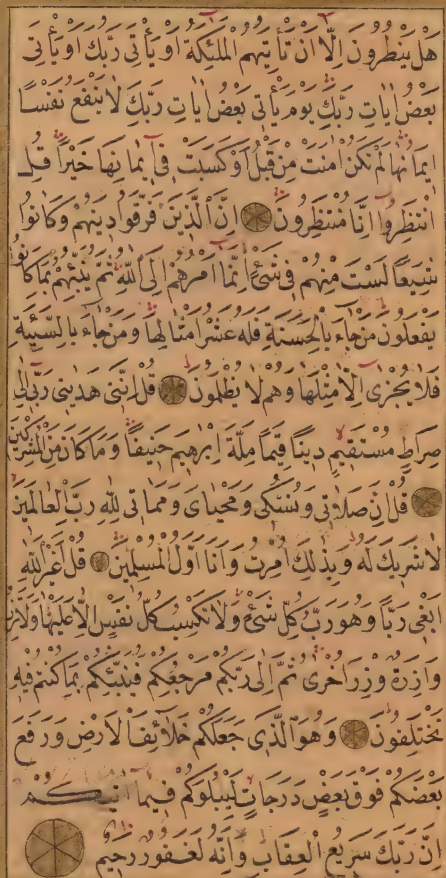 هَلْ يَنْظُرُونَ اِلَّا اَنْ تَأْتِيَهُمُ الْمَلٰئِكَةُ اَوْ يَأْتِيَ رَبُّكَ اَوْ يَأْتِيَ
بَعْضُ اٰيَاتِ رَبِّكَ يَوْمَ يَأْتِي بَعْضُ اٰيَاتِ رَبِّكَ لَا يَنْفَعُ نَفْسًا
اِيمَانُهَا لَمْ تَكُنْ اٰمَنَتْ مِنْ قَبْلُ اَوْ كَسَبَتْ فِي اِيمَانِهَا خَيْرًا قُلِ
انْتَظِرُوا اِنَّا مُنْتَظِرُونَ اِنَّ الَّذِينَ فَرَّقُوا دِينَهُمْ وَكَانُوا
شِيَعًا لَسْتَ مِنْهُمْ فِي شَيْءٍ اِنَّمَا اَمْرُهُمْ اِلَى اللّٰهِ ثُمَّ يُنَبِّئُهُمْ بِمَا كَانُوا
يَفْعَلُونَ مَنْ جَاءَ بِالْحَسَنَةِ فَلَهُ عَشْرُ اَمْثَالِهَا وَمَنْ جَاءَ بِالسَّيِّئَةِ
فَلَا يُجْزٰى اِلَّا مِثْلَهَا وَهُمْ لَا يُظْلَمُونَ قُلْ اِنَّنِي هَدٰينِي رَبِّي اِلٰى
صِرَاطٍ مُسْتَقِيمٍ دِينًا قِيَمًا مِلَّةَ اِبْرٰهِيمَ حَنِيفًا وَمَا كَانَ مِنَ الْمُشْرِكِينَ
قُلْ اِنَّ صَلَاتِي وَنُسُكِي وَمَحْيَايَ وَمَمَاتِي لِلّٰهِ رَبِّ الْعَالَمِينَ
لَا شَرِيكَ لَهُ وَبِذٰلِكَ اُمِرْتُ وَاَنَا اَوَّلُ الْمُسْلِمِينَ قُلْ اَغَيْرَ اللّٰهِ
اَبْغِي رَبًّا وَهُوَ رَبُّ كُلِّ شَيْءٍ وَلَا تَكْسِبُ كُلُّ نَفْسٍ اِلَّا عَلَيْهَا وَلَا تَزِرُ
وَازِرَةٌ وِزْرَ اُخْرٰى ثُمَّ اِلٰى رَبِّكُمْ مَرْجِعُكُمْ فَيُنَبِّئُكُمْ بِمَا كُنْتُمْ فِيهِ
تَخْتَلِفُونَ وَهُوَ الَّذِي جَعَلَكُمْ خَلَائِفَ الْاَرْضِ وَرَفَعَ
بَعْضَكُمْ فَوْقَ بَعْضٍ دَرَجَاتٍ لِيَبْلُوَكُمْ فِيمَا اٰتٰيكُمْ
اِنَّ رَبَّكَ سَرِيعُ الْعِقَابِ وَاِنَّهُ لَغَفُورٌ رَحِيمٌ